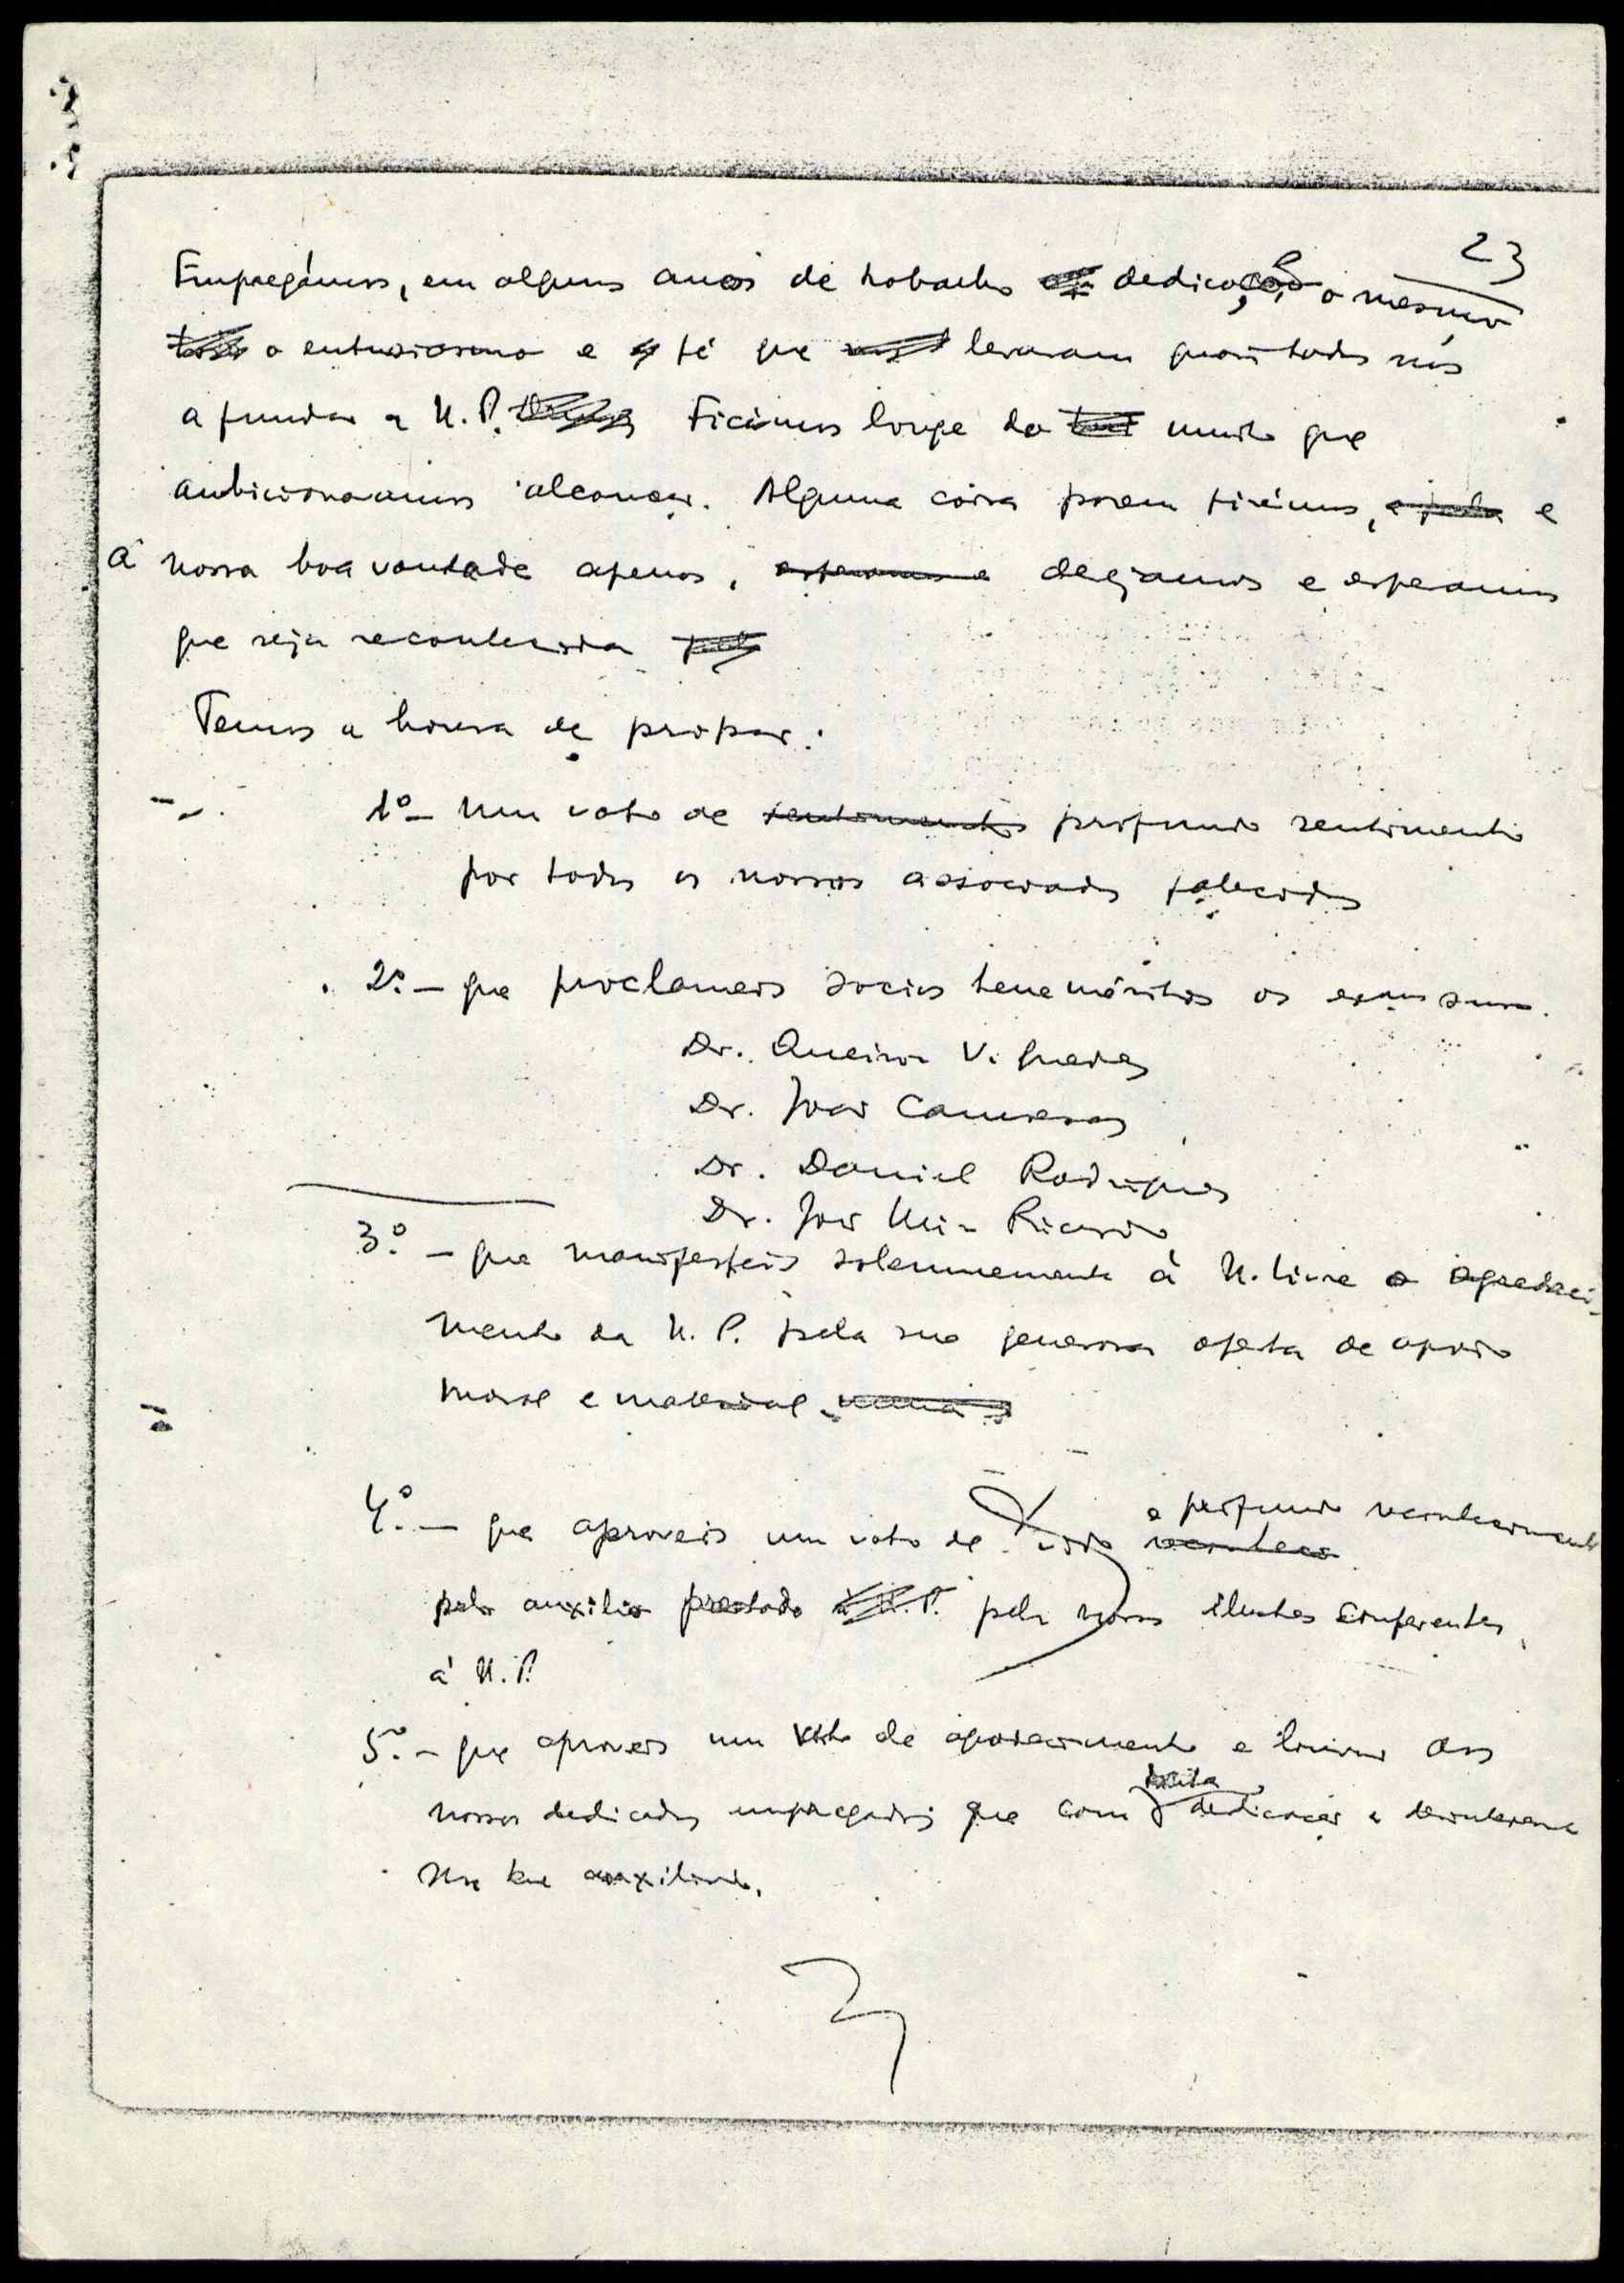 23
Empregámos, em alguns anos de trabalho dedicação, o mesmo
o entusiasmo e fé que levaram quasi todos nós
a fundar a U. P. Ficámos longe do muito que
ambicionavamos alcançar. Alguma coisa porem fizémos, e
a nossa boa vontade apenas, desejamos e esperamos
que seja reconhecida
Temos a honra de propor:
1º - Um voto de sentimento profundo sentimento
por todos os nossos associados falecidos
2º - que proclameis socios beneméritos os exmos snrs.
Dr. Queiroz V. Guedes
Dr. João Camoesas
Dr. Daniel Rodrigues
Dr. José Ricardo
3º - que manifesteis solemnemente á U. Livre o agradeci-
mento da U. P. pela sua generosa oferta de apoio
moral e material
e profundo reconhecimento
4º - que aproveis um voto de
pelo auxilio prestado pelos nossos ilustres conferentes,
á U. P.
5º - que aproveis um voto de agradecimento e louvor aos
tanta
nossos dedicados empregados que com dedicação e desinteresse
nos auxiliaram.